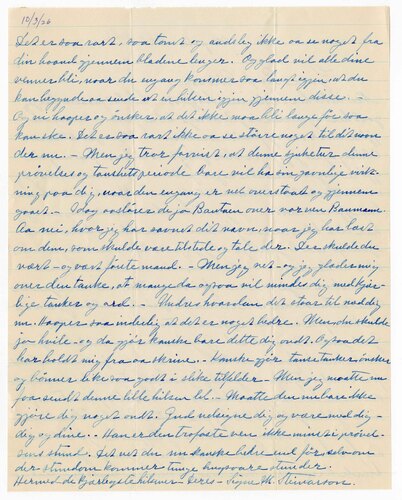 10/3/26
Det er saa rart, saa tomt og andslig ikke aa se noget fra
din haand gjennem bladene lenger. Og glad vil alle dine
venner bli, naar du engang kommer saa langt igjen, at du
kan begynde aa sende ut en hilsen igjen gjennem disse. -
Og vi haaper og ønsker, at det ikke maa bli længe før saa
kan ske. Det er saa rart ikke aa se større noget til dit navn
der nu. - Men jeg tror forvist, at denne syketer denne
prøvelses og taushets periode bare vil ha en gavnlig virk-
ning paa dig, naar den engang er vel overstaatt og gjennem
gaaet. - Idag avslører de jo Bautaen over vor ven Baumann.
Aa nei, hvor jeg har savnet dit navn, naar jeg har læst
om dem, som skulde være tilstede og tale der. Der skulde du
vært - og vært første mand. - Men jeg vet - og jeg glæder mig
over den tanke, at mange da ogsaa vil mindes dig med kjær-
lige tanker og ord. - Undres hvordan det staar til med dig
nu. Haaper saa inderlig at det er noget bedre. Men du skulde
jo hvile - og da gjør kanske bare dette dig ondt. Ogsaa det
har holdt mig fra aa skrive. - Kanske gjør tause tanker, ønsker
og bønner like saa godt i slike tilfelder - Men jeg maatte nu
faa sendt denne lille hilsen til. - Maatte den nu bare ikke
gjøre dig noget ondt. Gud velsigne dig og være med dig -
dig og dine. - Han er den trofaste ven ikke minst i prøvel-
sens stund. Det vet du nu kanske bedre end før selv om
der stundom kommer tunge tunge stunder.
Hermed de kjærligste hilsner - Deres - Signe M. Steinarson.